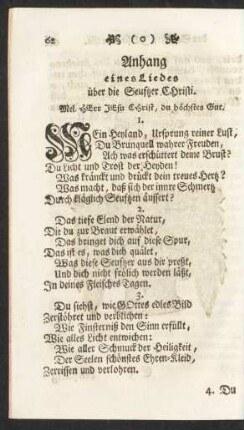 62 (o)
Anhang
eines Liedes
über die Seufzer CHristi.
Mel. HErr JEsu CHrist, du höchstes Gut.
1.
MEin Heyland, Ursprung reiner Lust,
Du Brunquell wahrer Freuden,
Ach was erschüttert deine Brust?
Du Licht und Trost der Heyden!
Was kränckt und drückt dein treues Hertz?
Was macht, daß sich der innre Schmertz
Durch kläglich Seufftzen äussert?
2.
Das tiefe Elend der Natur,
Die du zur Braut erwählet,
Das bringet dich auf diese Spur,
Das ist es, was dich quälet,
Was diese Seufzer aus dir preßt,
Und dich nicht frölich werden läßt,
In deines Fleisches Tagen.
3.
Du siehst, wie GOttes edles Bild
Zerstöhret und verblichen:
Wie Finsterniß den Sinn erfüllt,
Wie alles Licht entwichen:
Wie aller Schmuck der Heiligkeit,
Der Seelen schönstes Ehren-Kleid,
Zerrissen und verlohren.
4. Du